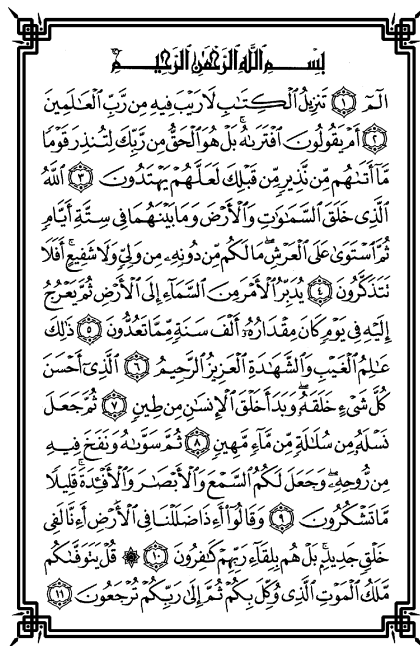 بِسْمِ ٱللَّهِ ٱلرَّحْمَٰنِ ٱلرَّحِيمِ
الٓمٓ ١ تَنزِيلُ ٱلْكِتَٰبِ لَا رَيْبَ فِيهِ مِن رَّبِّ ٱلْعَٰلَمِينَ
٢ أَمْ يَقُولُونَ ٱفْتَرَىٰهُ ۚ بَلْ هُوَ ٱلْحَقُّ مِن رَّبِّكَ لِتُنذِرَ قَوْمًا
مَّآ أَتَىٰهُم مِّن نَّذِيرٍ مِّن قَبْلِكَ لَعَلَّهُمْ يَهْتَدُونَ ٣ ٱللَّهُ
ٱلَّذِى خَلَقَ ٱلسَّمَٰوَٰتِ وَٱلْأَرْضَ وَمَا بَيْنَهُمَا فِى سِتَّةِ أَيَّامٍ
ثُمَّ ٱسْتَوَىٰ عَلَى ٱلْعَرْشِ ۖ مَا لَكُم مِّن دُونِهِۦ مِن وَلِىٍّ وَلَا شَفِيعٍ ۚ أَفَلَا
تَتَذَكَّرُونَ ٤ يُدَبِّرُ ٱلْأَمْرَ مِنَ ٱلسَّمَآءِ إِلَى ٱلْأَرْضِ ثُمَّ يَعْرُجُ
إِلَيْهِ فِى يَوْمٍ كَانَ مِقْدَارُهُۥٓ أَلْفَ سَنَةٍ مِّمَّا تَعُدُّونَ ٥ ذَٰلِكَ
عَٰلِمُ ٱلْغَيْبِ وَٱلشَّهَٰدَةِ ٱلْعَزِيزُ ٱلرَّحِيمُ ٦ ٱلَّذِىٓ أَحْسَنَ
كُلَّ شَىْءٍ خَلَقَهُۥ ۖ وَبَدَأَ خَلْقَ ٱلْإِنسَٰنِ مِن طِينٍ ٧ ثُمَّ جَعَلَ
نَسْلَهُۥ مِن سُلَٰلَةٍ مِّن مَّآءٍ مَّهِينٍ ٨ ثُمَّ سَوَّىٰهُ وَنَفَخَ فِيهِ
مِن رُّوحِهِۦ ۖ وَجَعَلَ لَكُمُ ٱلسَّمْعَ وَٱلْأَبْصَٰرَ وَٱلْأَفْـِٔدَةَ ۚ قَلِيلًا
مَّا تَشْكُرُونَ ٩ وَقَالُوٓا۟ أَءِذَا ضَلَلْنَا فِى ٱلْأَرْضِ أَءِنَّا لَفِى
خَلْقٍ جَدِيدٍۭ ۚ بَلْ هُم بِلِقَآءِ رَبِّهِمْ كَٰفِرُونَ ١٠ ۞ قُلْ يَتَوَفَّىٰكُم
مَّلَكُ ٱلْمَوْتِ ٱلَّذِى وُكِّلَ بِكُمْ ثُمَّ إِلَىٰ رَبِّكُمْ تُرْجَعُونَ ١١